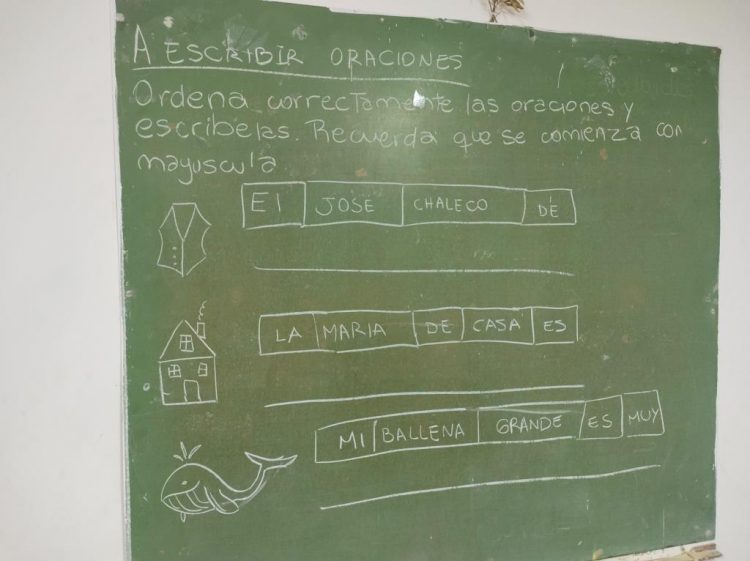 A ESCRIBIR ORACIONES
Ordena correctamente las oraciones y
escribelas. Recuerda que se comienza con
mayuscula
El JOSÉ CHALECO DE
LA MARIA DE CASA ES
MI BALLENA GRANDE ES MUY